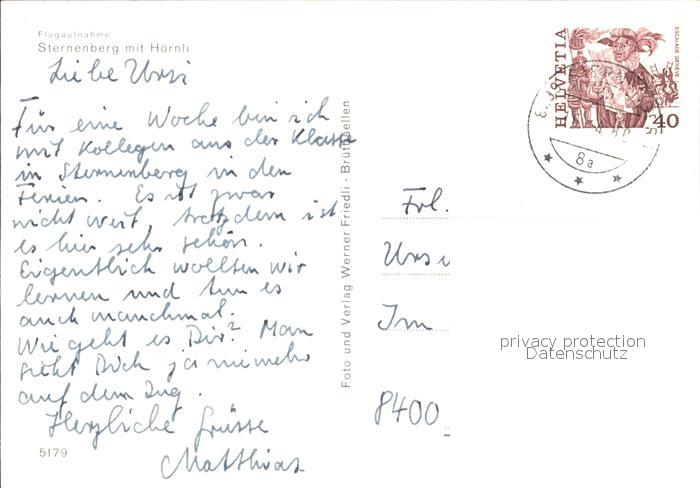 Flugaufnahme
Sternenberg mit Hörnli
Liebe Ursi
Für eine Woche bin ich
mit Kollegen aus der Klasse
in Sternenberg in den
Ferien. Es ist zwar
nicht weit, trotzdem ist
es hier sehr schön.
Eigentlich wollten wir
lernen und tun es
auch manchmal.
Wie geht es Dir? Man
sieht Dich ja nie mehr
auf dem Zug.
Herzliche Grüsse
Matthias
5179
Foto und Verlag Werner Friedli - Brüttisellen
HELVETIA
ESCALADE GENÈVE
40
8a
Frl.
Ursi
Im
8400
privacy protection
Datenschutz